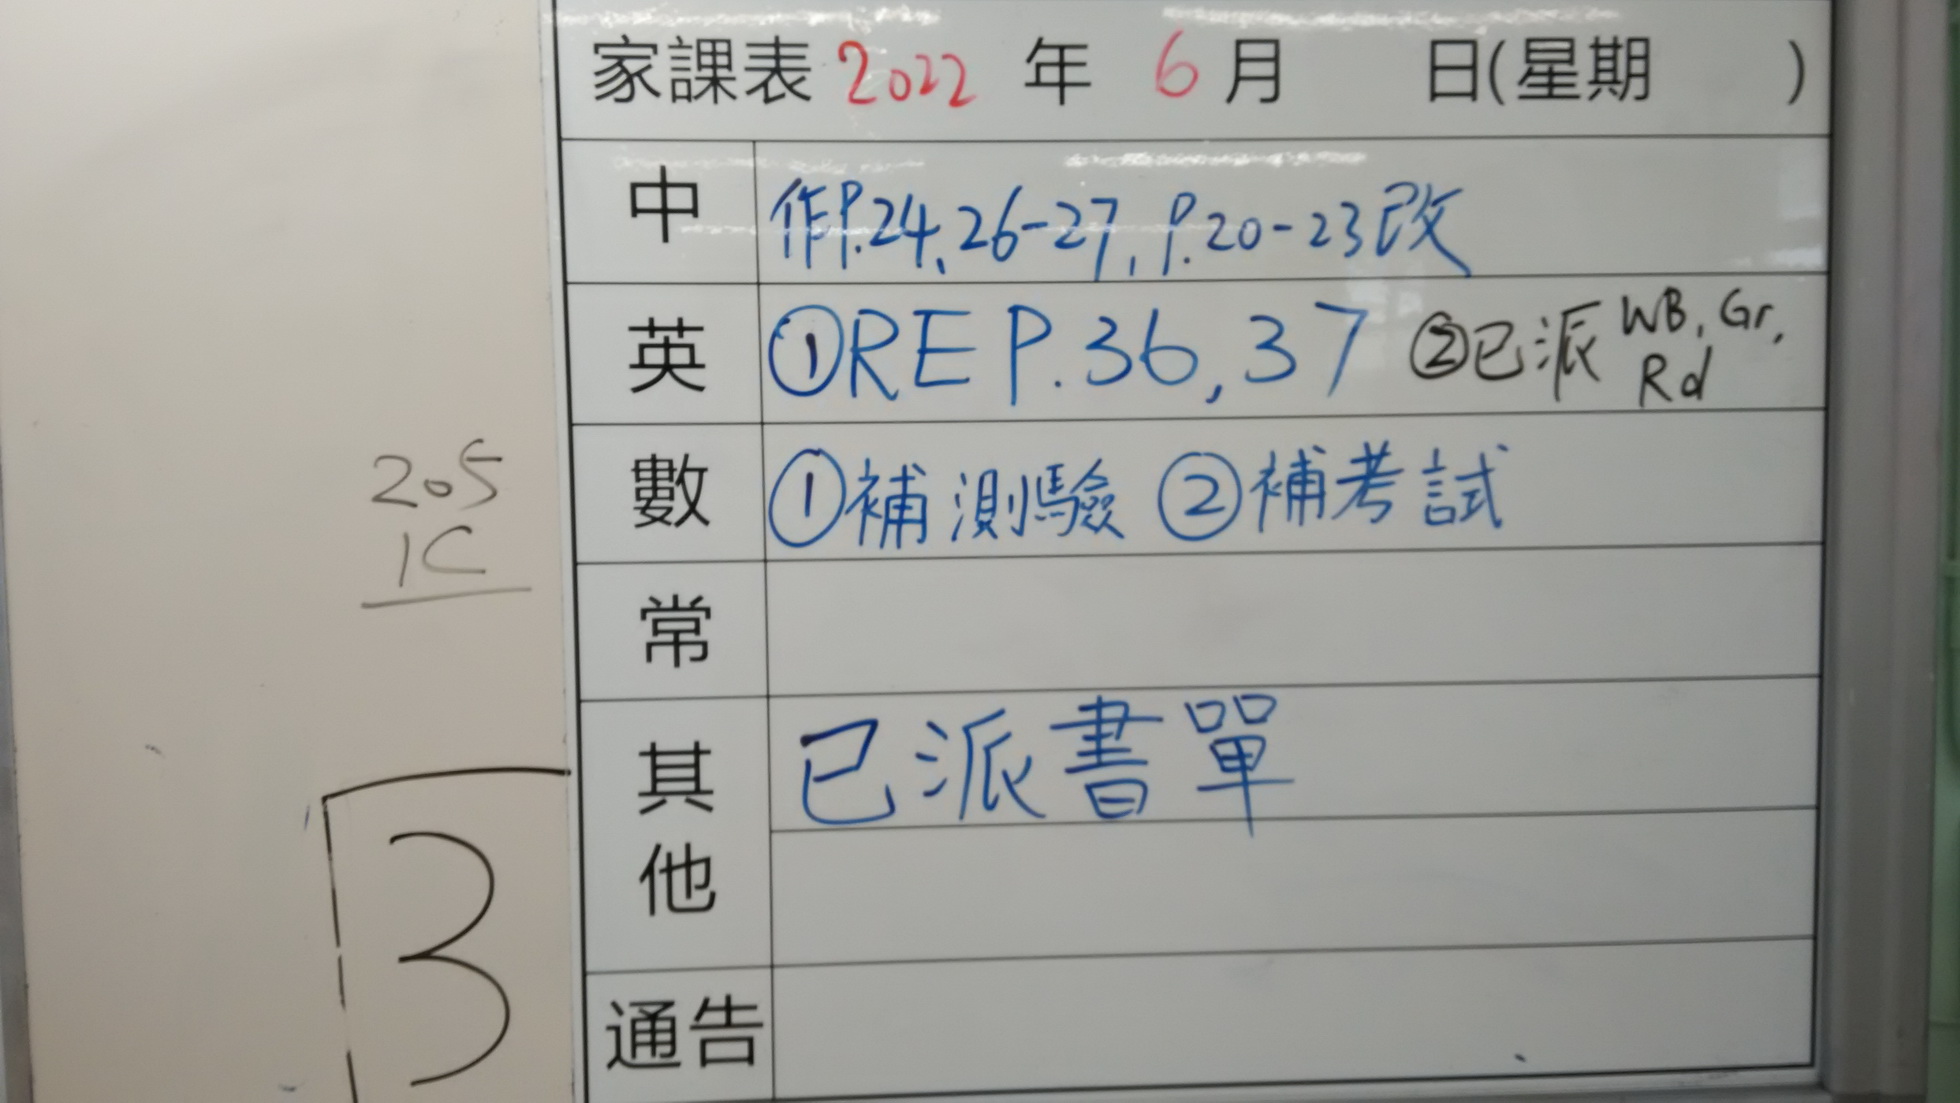 家課表 2022 年 6 月 日(星期 )
中 作P.24、26-27, P.20-23改
英 ①RE P.36,37 ②已派 WB, Gr, Rd
數 ①補測驗 ②補考試
常
其他 已派書單
通告
205
1C
3